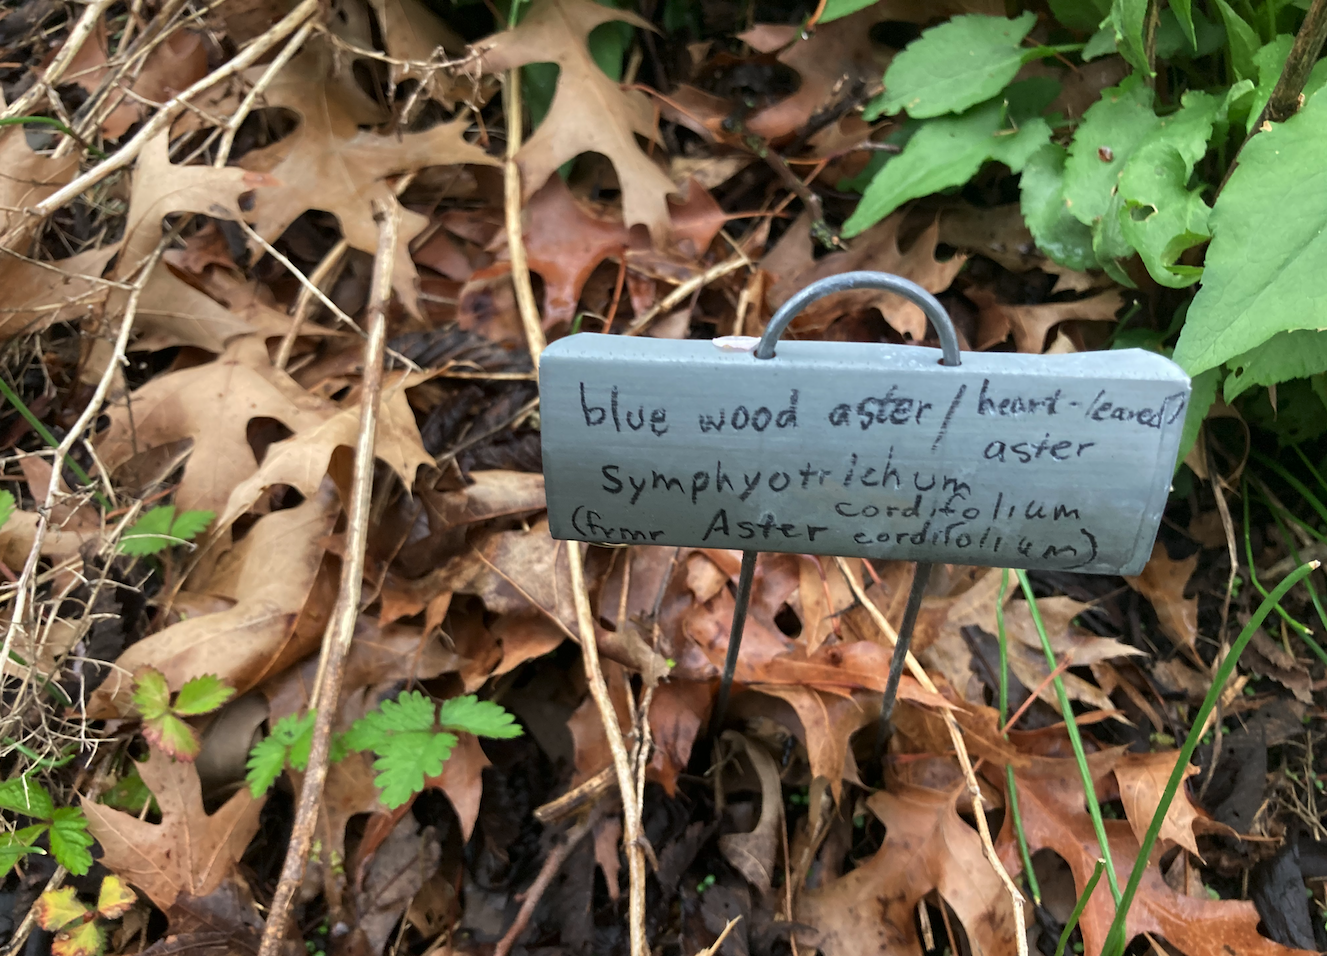 blue wood aster / heart-leaved
aster
Symphyotrichum
cordifolium
(frmr Aster cordifolium)